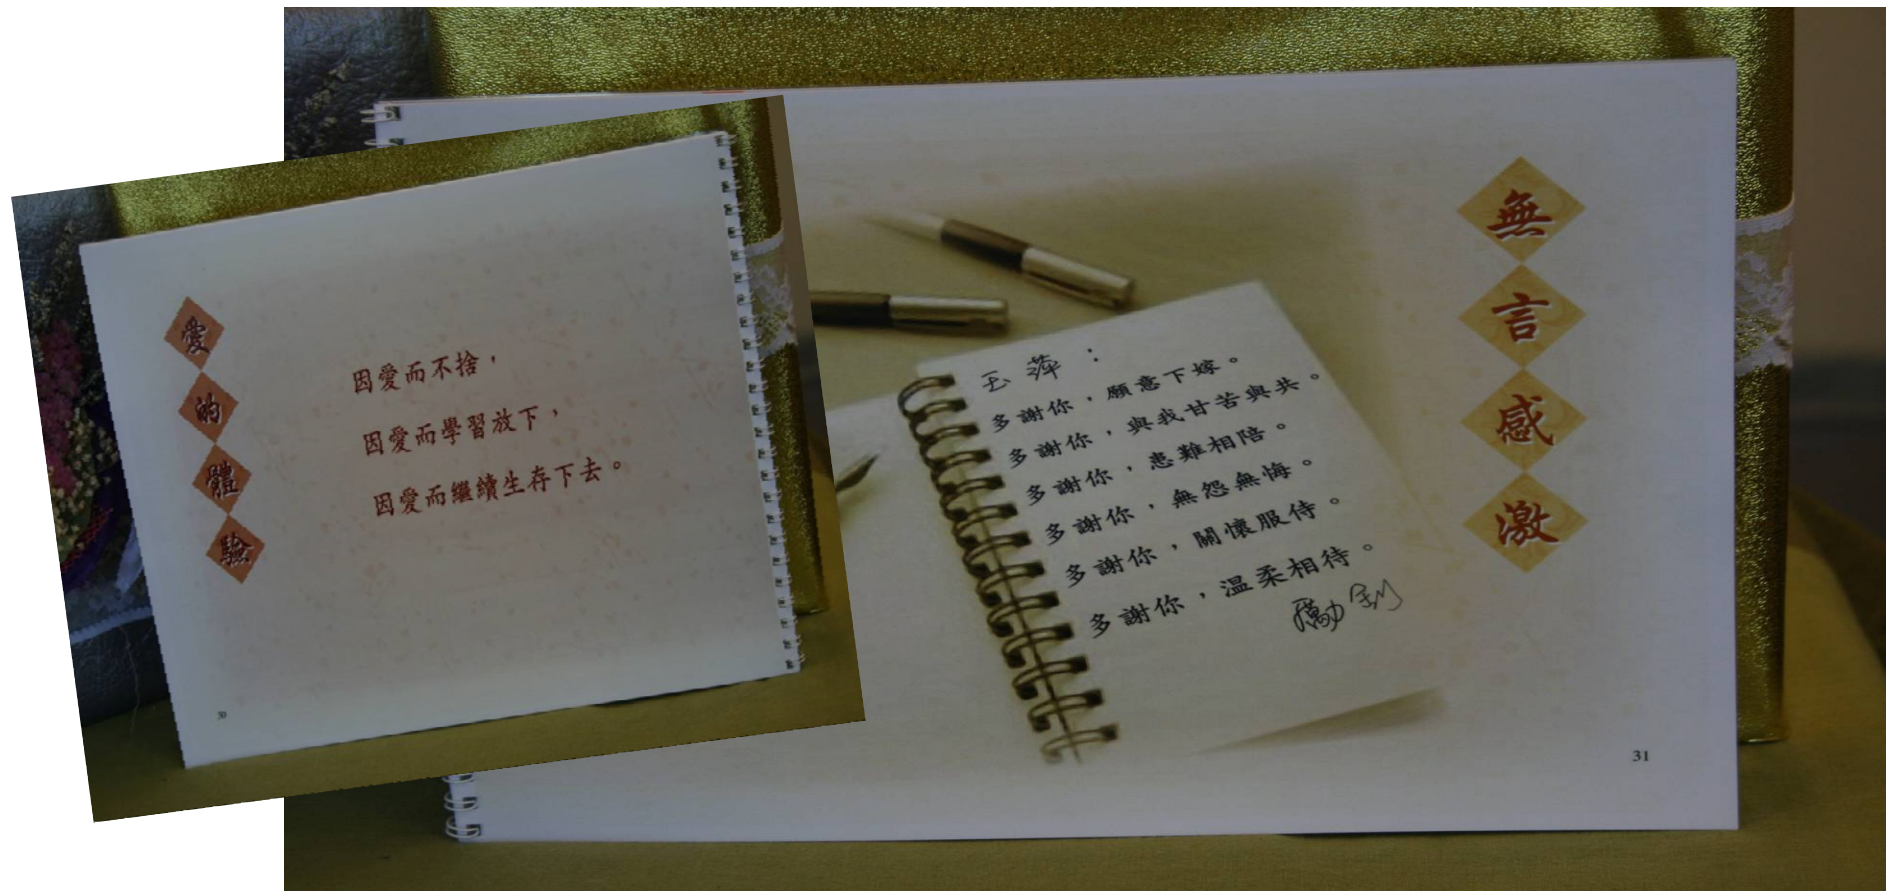 愛的體驗
因愛而不捨，
因愛而學習放下，
因愛而繼續生存下去。
30
無言感激
玉萍：
多謝你，願意下嫁。
多謝你，與我甘苦與共。
多謝你，患難相陪。
多謝你，無怨無悔。
多謝你，關懷服侍。
多謝你，溫柔相待。
勵釗
31